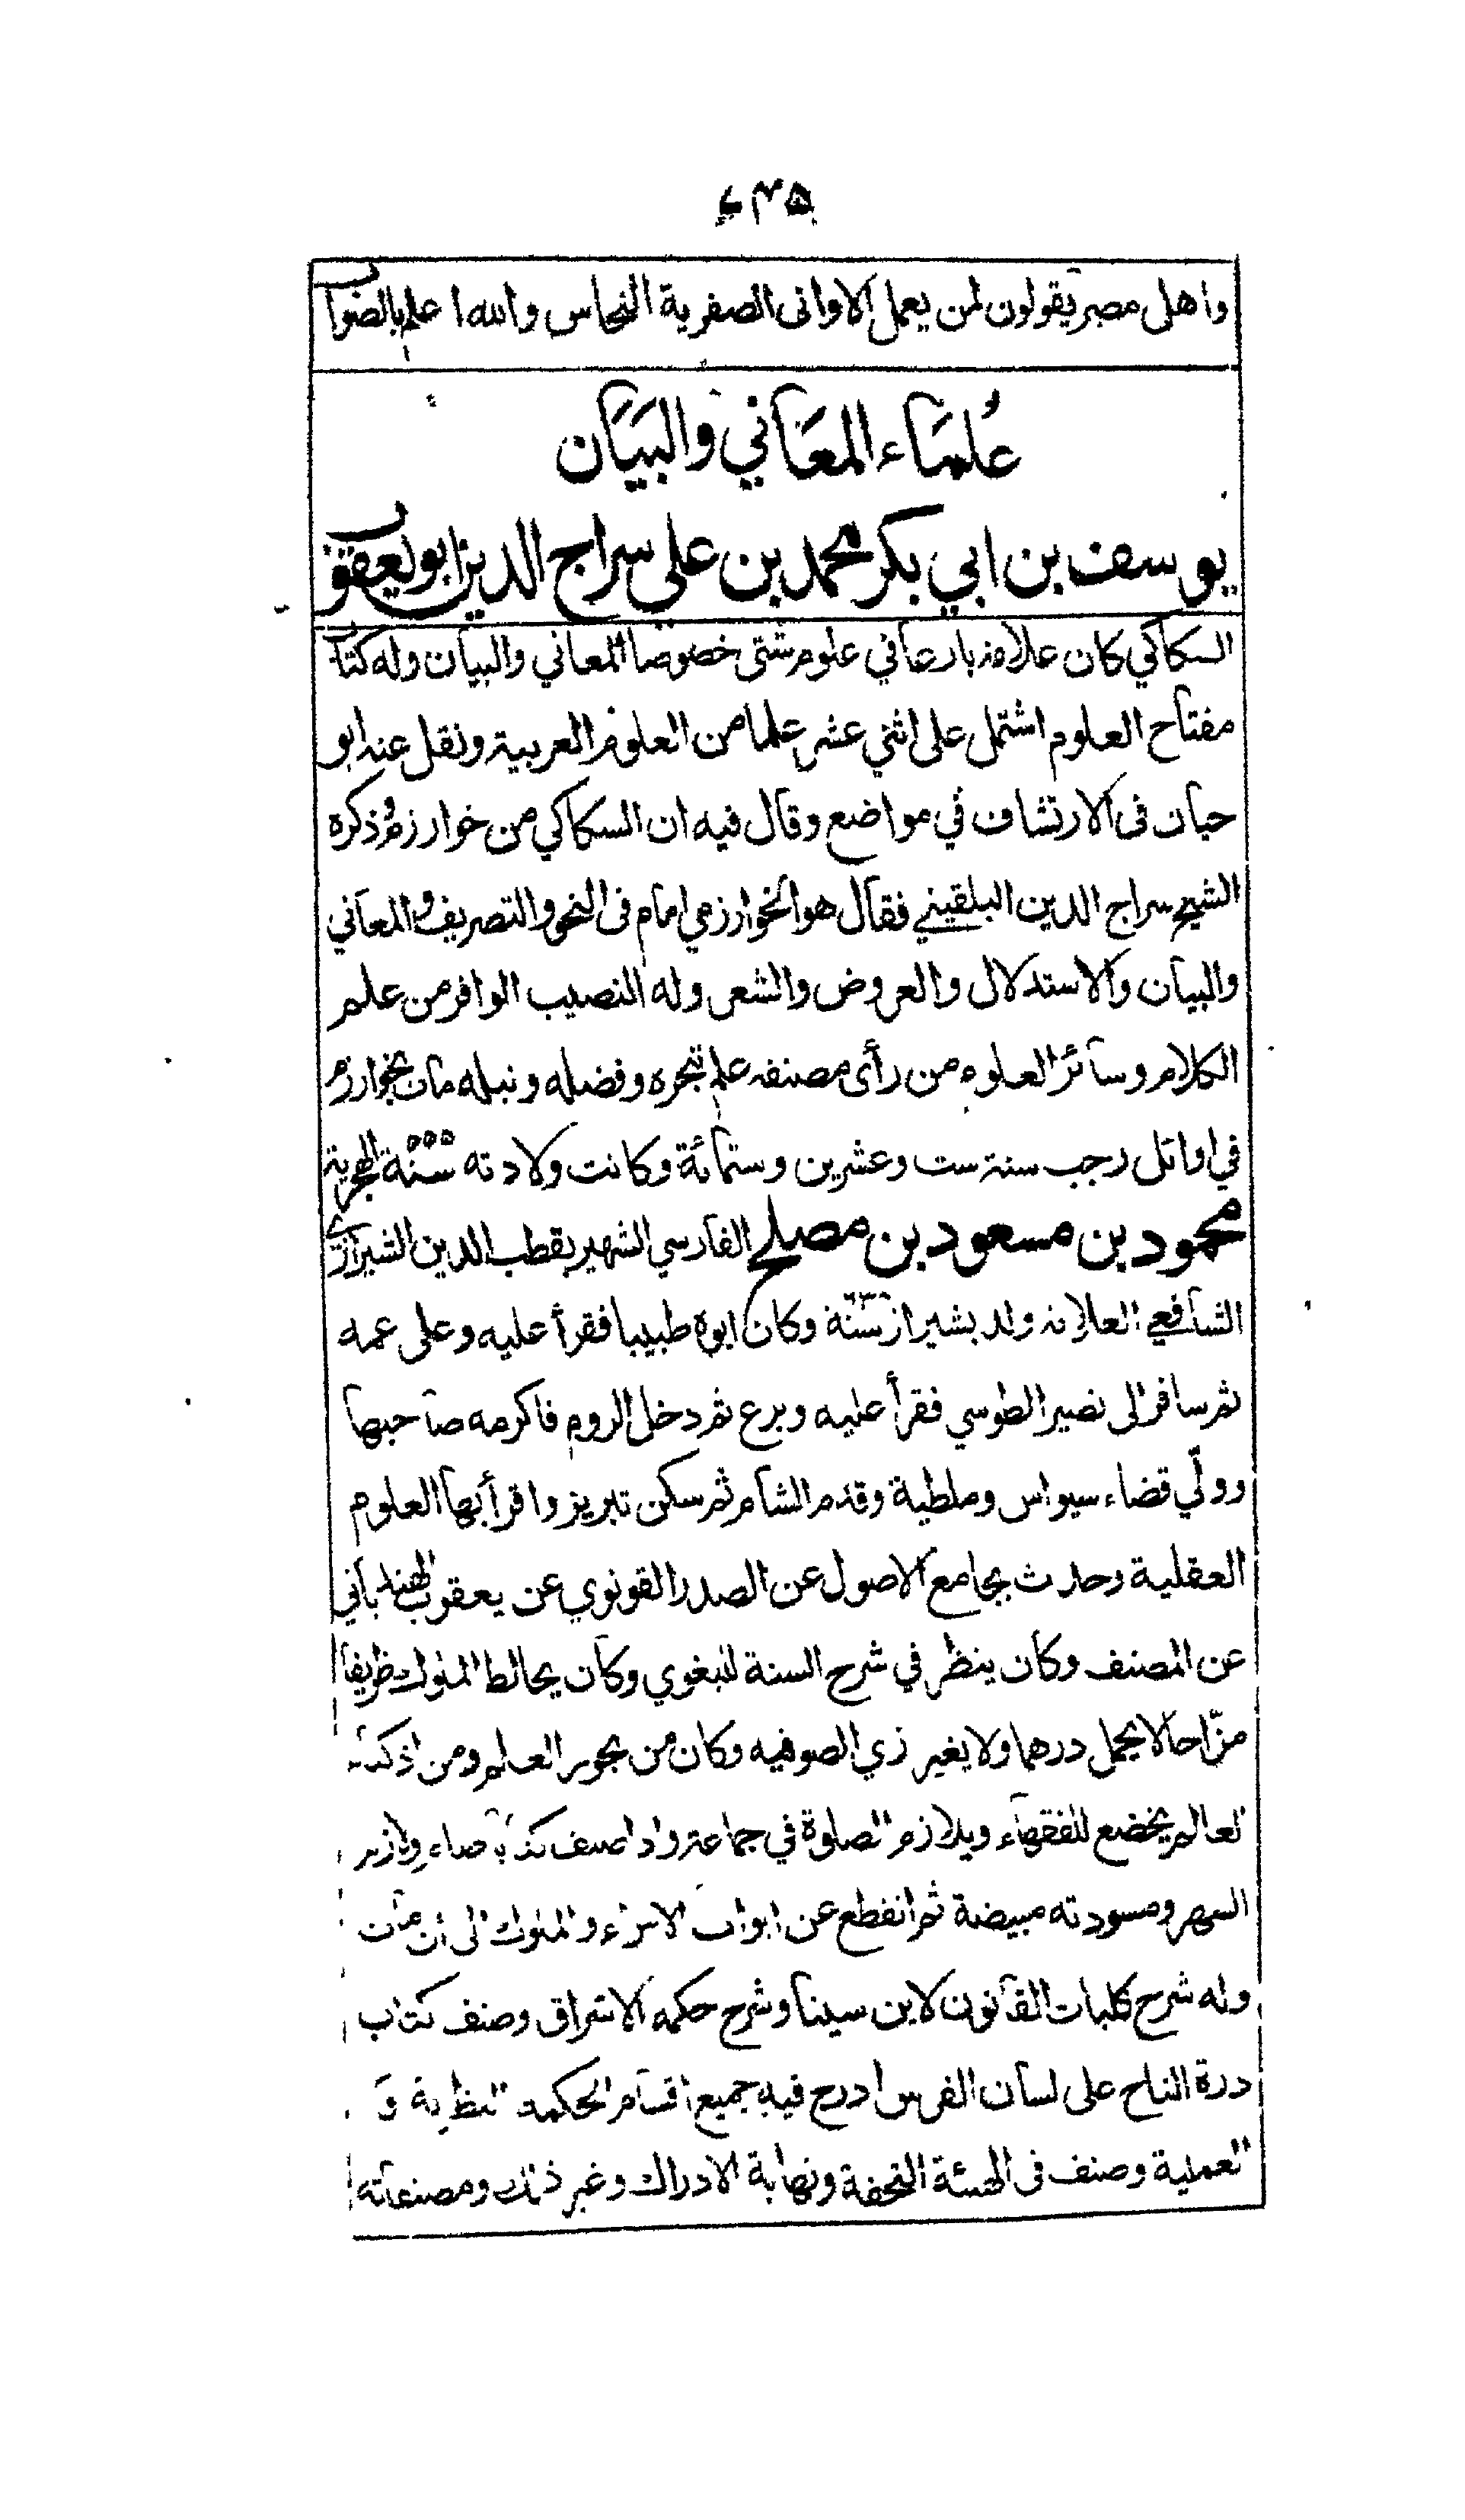 واهل مصر يقولون لمن يعمل الاوانى الصفرية النحاس والله اعلم بالصواب
عُلمَاء المعَاني والبيَان
يوسف بن ابي بكر محمد بن علي سراج الدين ابو يعقوب
السكاكي كان علامة بارعا في علوم شتى خصوصا المعاني والبيان وله كتاب
مفتاح العلوم اشتمل على اثني عشر علما من العلوم العربية ونقل عنه ابو
حيان فى الارتشاف في مواضع وقال فيه ان السكاكي من خوارزم وذكره
الشيخ سراج الدين البلقيني فقال هو الخوارزمي امام فى النحو والتصريف والمعاني
والبيان والاستدلال والعروض والشعر وله النصيب الوافر من علم
الكلام وسائر العلوم من رأى مصنفه علم تبحره وفضله ونبله مات بخوارزم
في اوائل رجب سنة ست وعشرين وستمائة وكانت ولادته سنة ٥٥٥ الهجرية
محمود بن مسعود بن مصلح الفارسي الشهير بقطب الدين الشيرازي
الشافعي العلامة ولد بشيراز سنة وكان ابوه طبيبا فقرأ عليه وعلى عمه
ثم سافر الى نصير الطوسي فقرأ عليه وبرع ثم دخل الروم فاكرمه صاحبها
وولّي قضاء سيواس وملطية وقدم الشام ثم سكن تبريز واقرأ بها العلوم
العقلية وحدث بجامع الاصول عن الصدر القونوي عن يعقوب الهندباني
عن المصنف وكان ينظر في شرح السنة للبغوي وكان يخالط الملوك ظريفا
مزّاحا لا يحمل درهما ولا يغير زي الصوفيه وكان من بحور العلم ومن اذكياء
العالم يخضع للفقهاء ويلازم الصلوة في جماعة واذا صنف كتابا صام ولازم
السهر ومسودته مبيضة ثم انقطع عن ابواب الامراء والملوك الى ان مات
وله شرح كليات القانون لابن سينا وشرح حكمة الاشراق وصنف كتاب
درة التاج على لسان الفرس ادرج فيه جميع اقسام الحكمة النظرية و
العملية وصنف فى الهيئة التحفة ونهاية الادراك وغير ذلك ومصنفاته